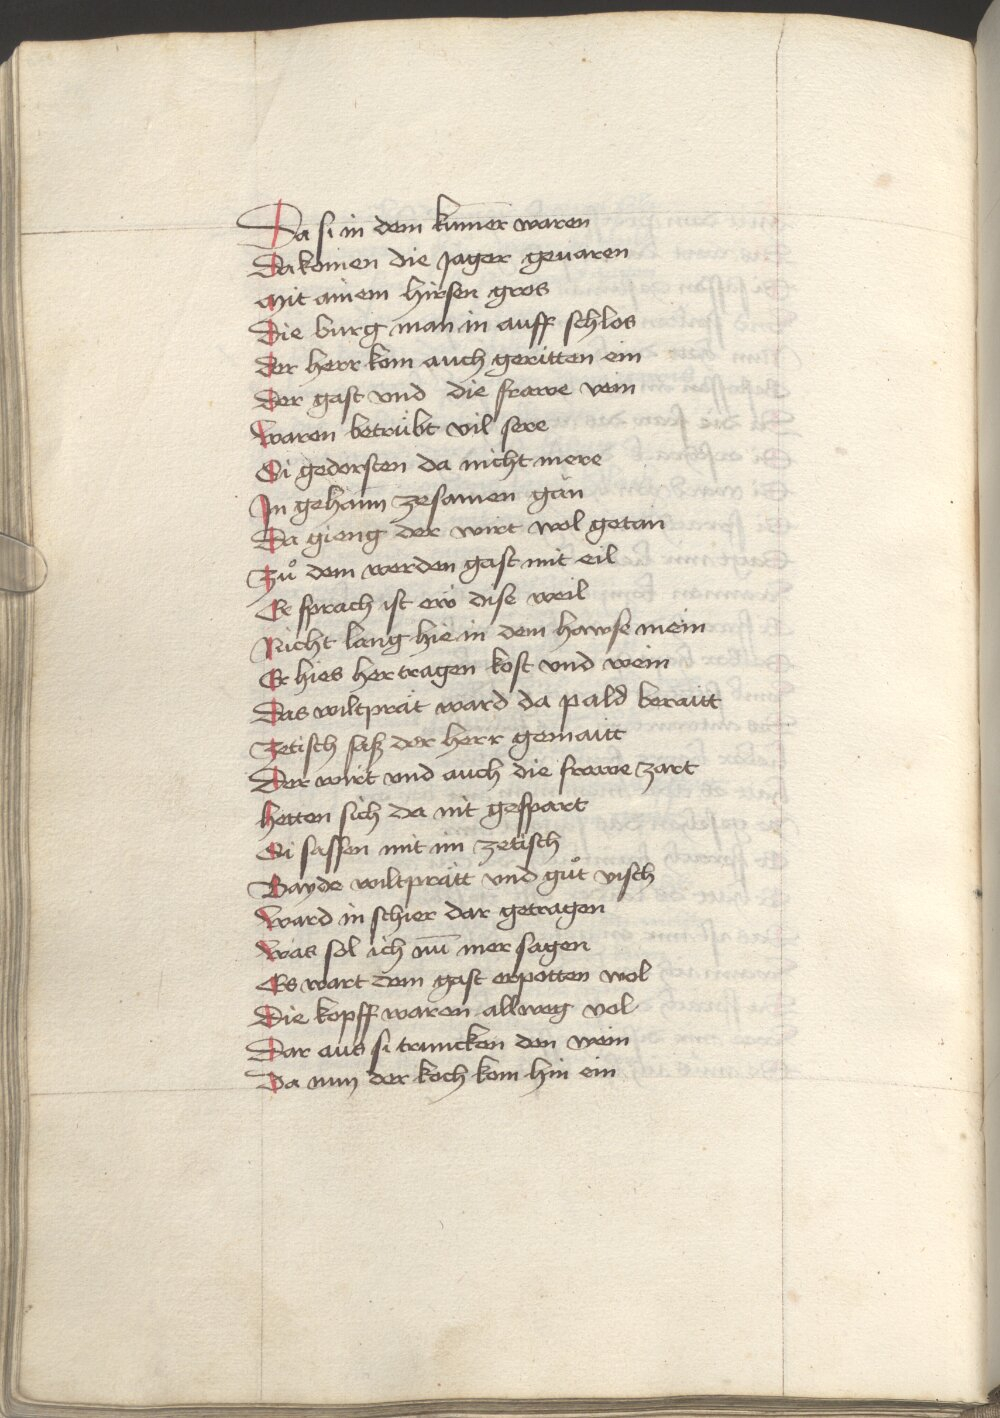 Da si in dem kum̄er waren
Da komen die Jager geuaren
Mit ainem hirsen gros
Die burg man in auff schlos
Der herr kom auch geritten ein
Der gast vnd die frawe vein
Waren betrübt vil sere
Si gedorsten da nicht mere
In gehaim zesamen gan
Da gieng der wirt wol getan
Zuͦ dem werden gast mit eil
Er sprach ist ew dise weil
Nicht lang hie in dem hawse mein
Er hies her tragen kost vnd wein
Das wiltprät ward da pald beraitt
Zetisch saß der herr gemaitt
Der wirt vnd auch die frawe zart
Hetten sich da nit gespart
Si sassen mit im zetisch
Bayde wiltprätt vnd guͦt visch
Ward in schier dar getragen
Was sol ich nū mer sagen
Es wart dem gast erpotten wol
Die kopff waren allweg vol
Dar aus si truncken den wein
Da nun der koch kom hin ein